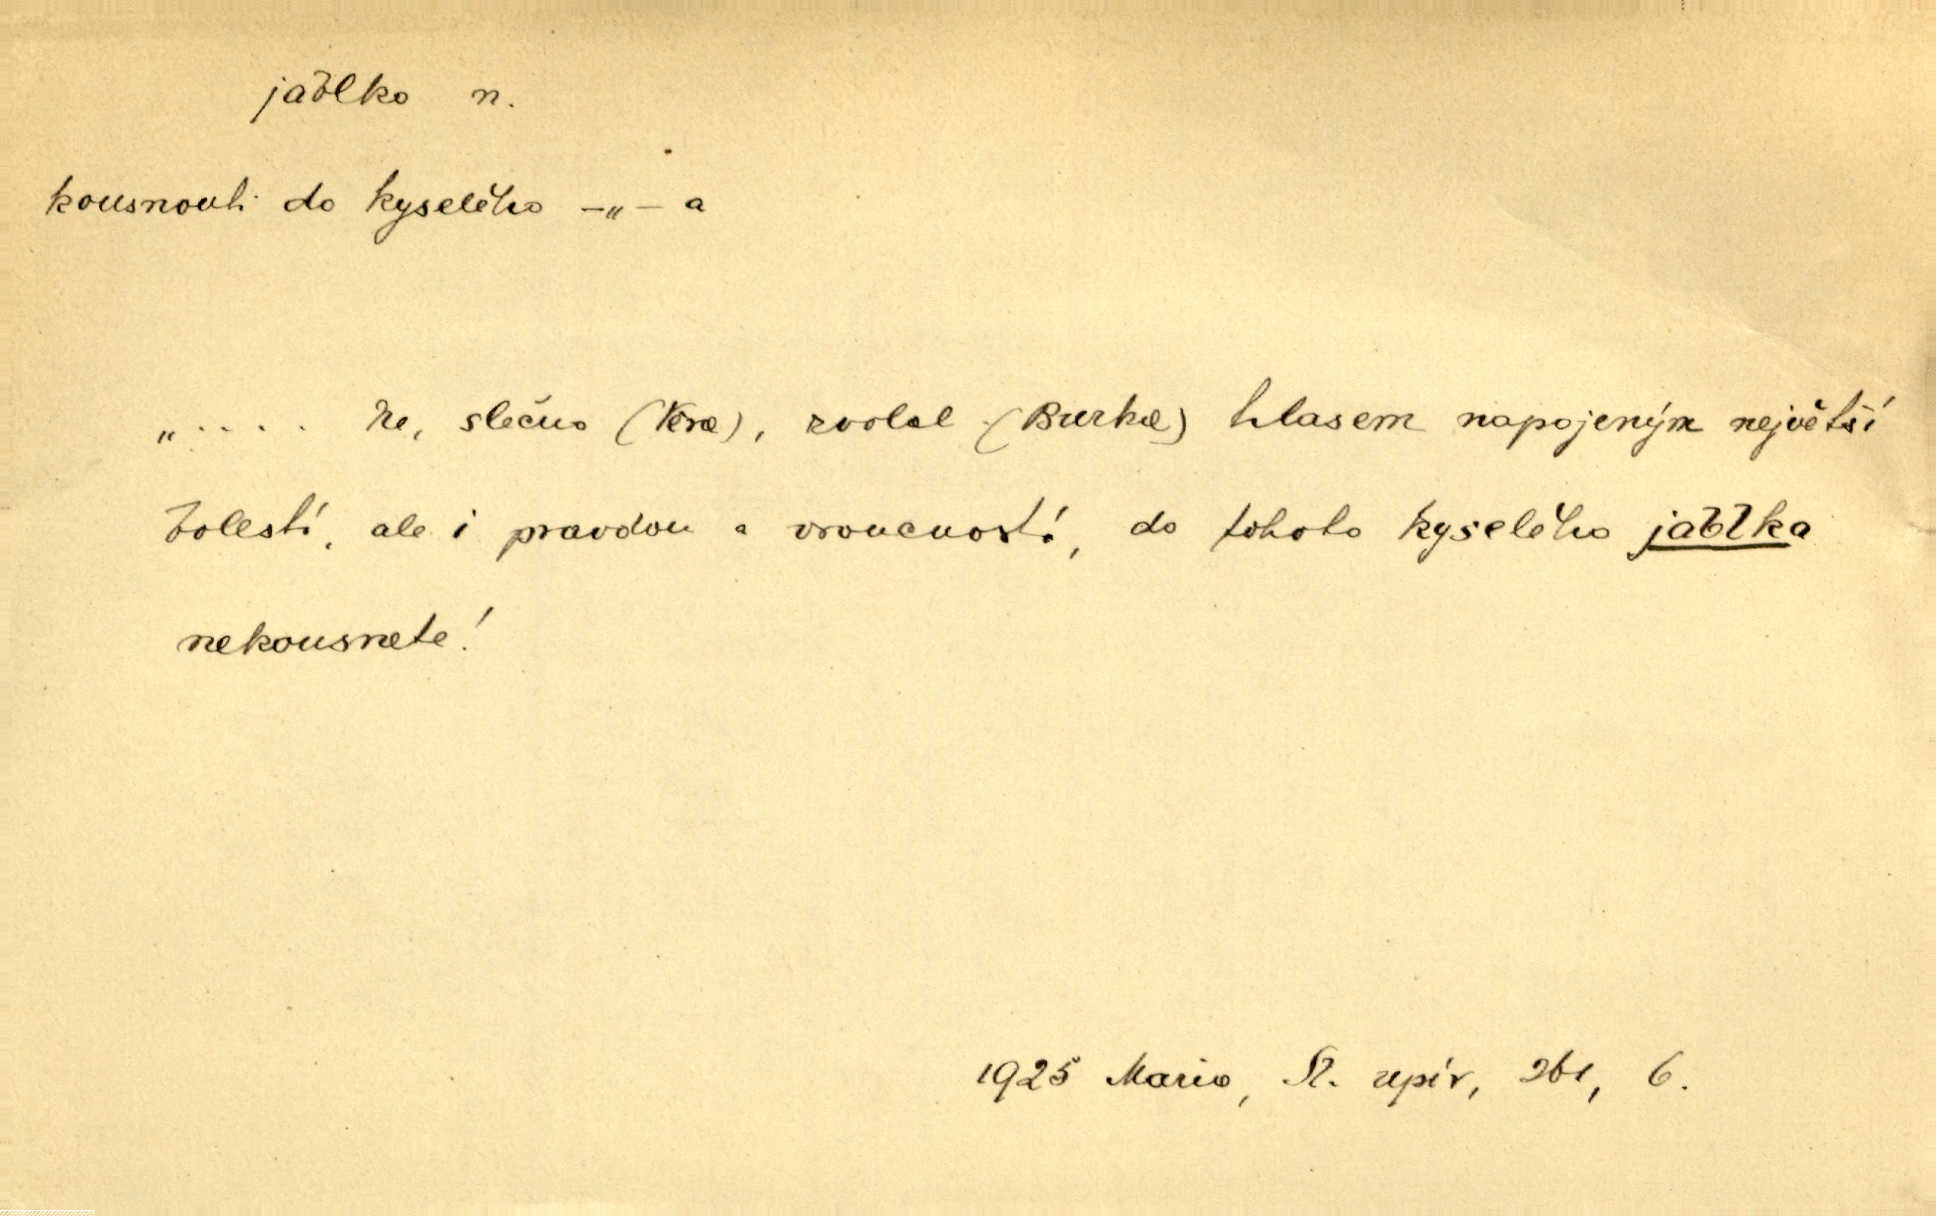 jablko n.
kousnouti do kyselého –„– a
„.... Ne, slečno (Věra), zvolal (Burka) hlasem napojeným největší
bolestí, ale i pravdou a vroucností, do tohoto kyselého jablka
nekousnete!
1925 Mario, Sl. upír, 261, 6.